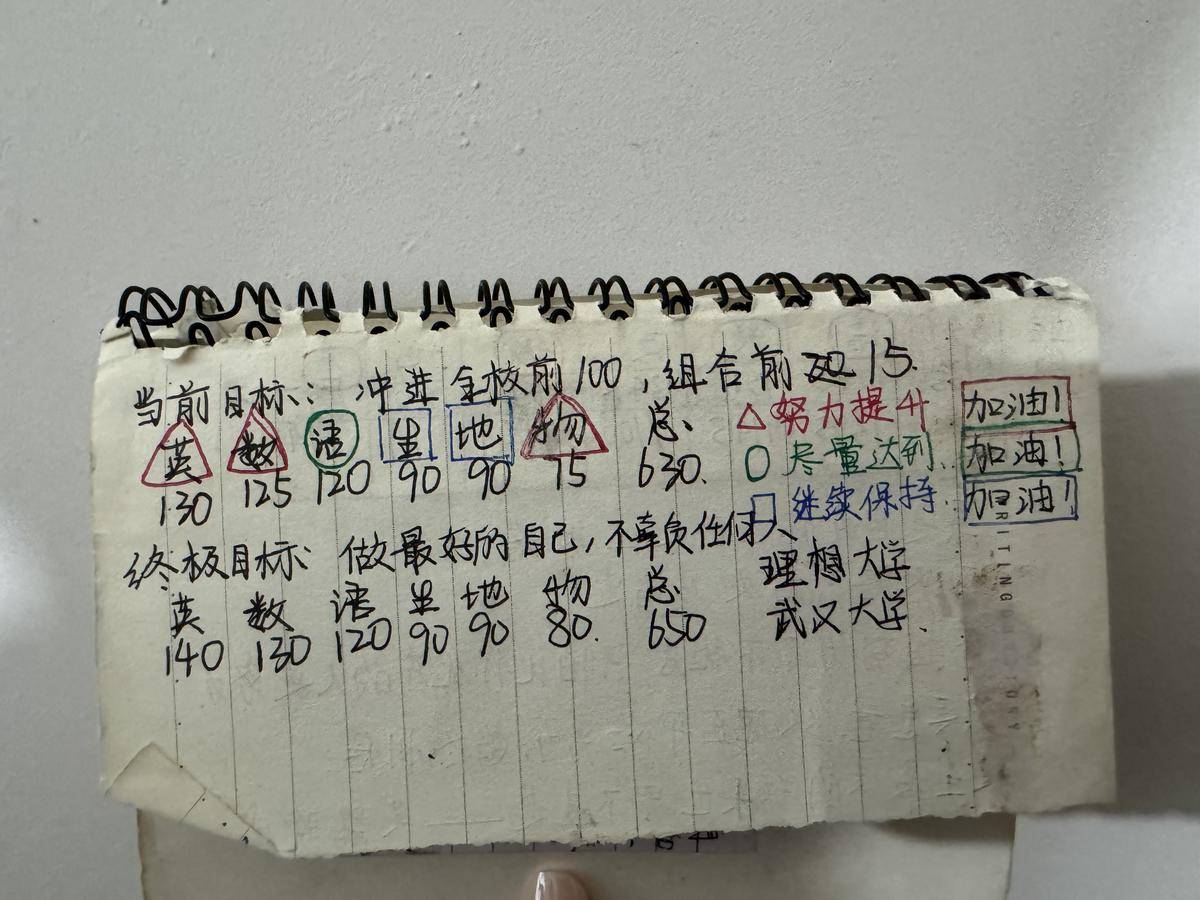 当前目标：冲进全校前100，组合前15.
英 数 语 生 地 物 总 △努力提升 加油！
130 125 120 90 90 75 630. ○尽量达到. 加油！
□继续保持. 加油！
终极目标：做最好的自己，不辜负任何人
英 数 语 生 地 物 总 理想大学
140 130 120 90 90 80. 650 武汉大学、